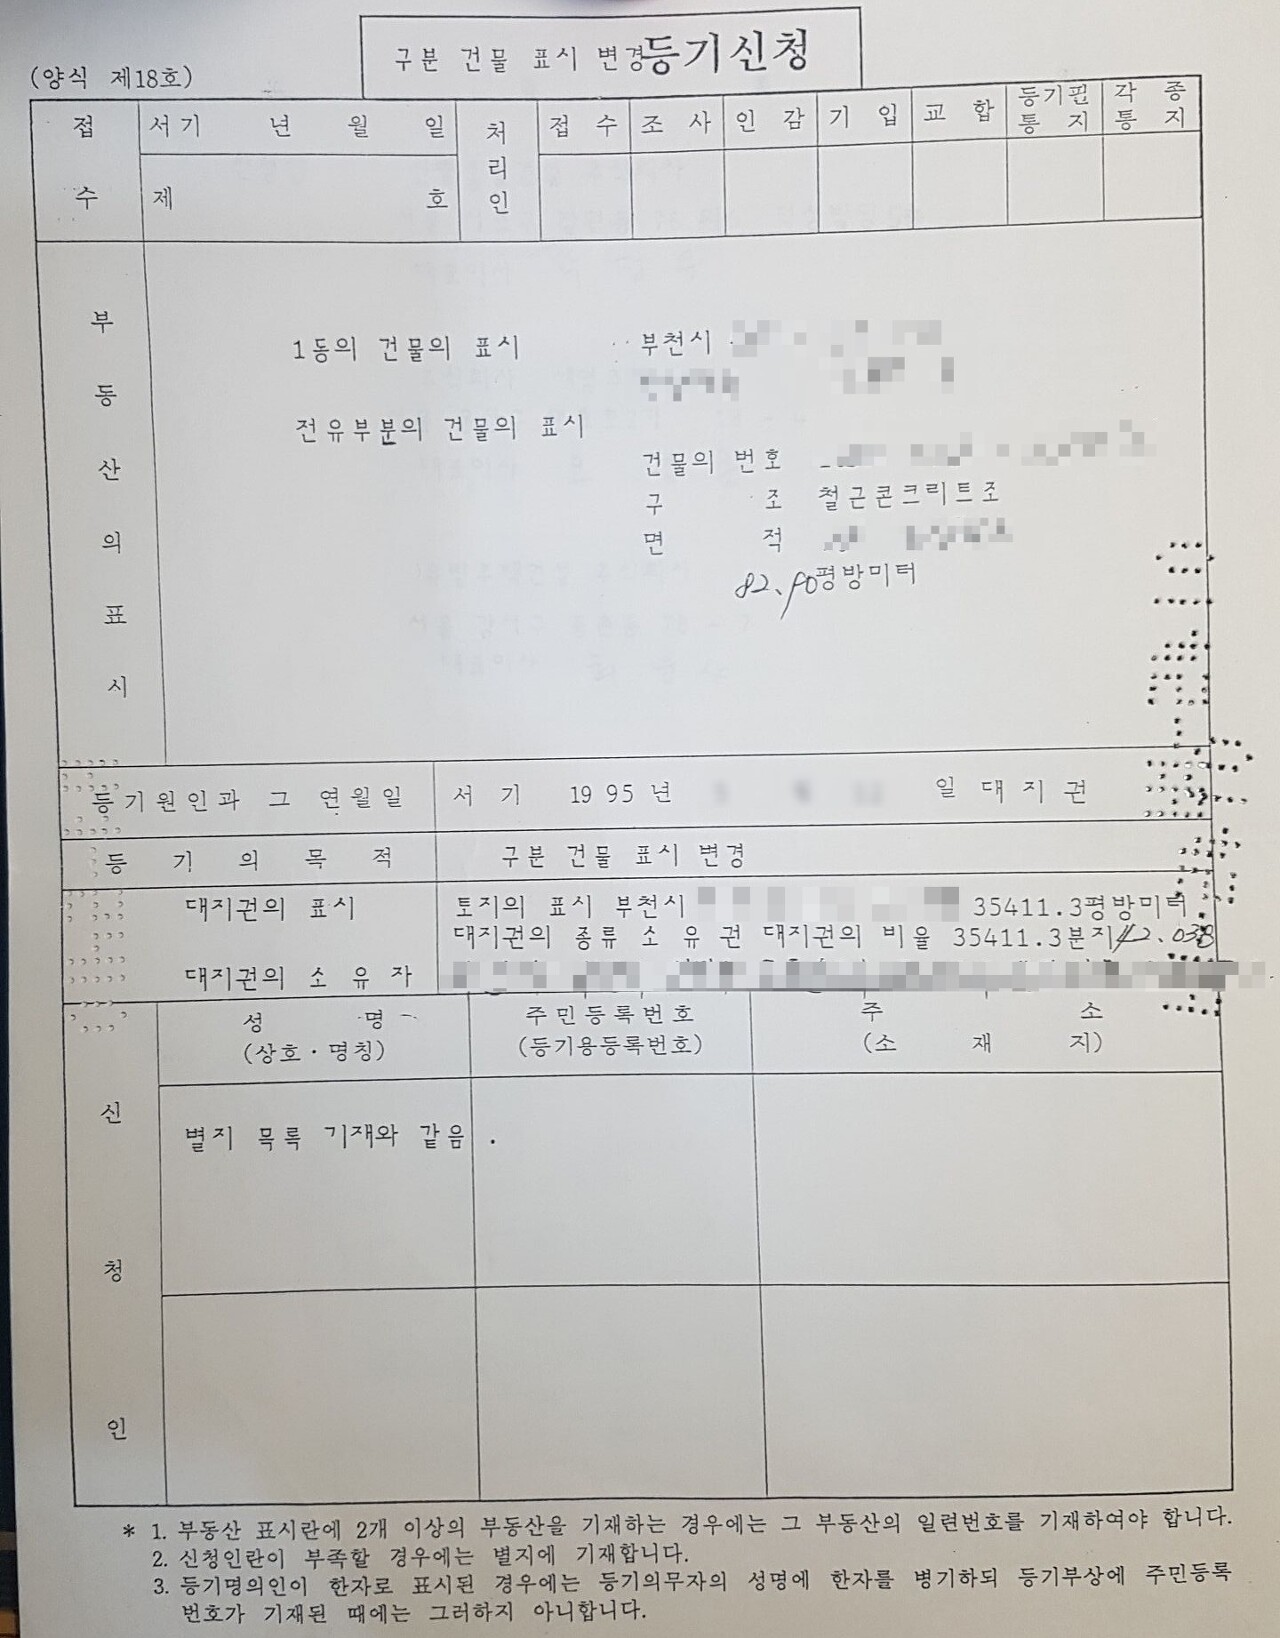 구분 건물 표시 변경등기신청
(양식 제18호)
접수 서기 년 월 일 처리인 접수 조사 인감 기입 교합 등기필통지 각종통지
제 호
부동산의표시
1동의 건물의 표시 부천시
전유부분의 건물의 표시
건물의 번호
구 조 철근콘크리트조
면 적
82.90평방미터
등기원인과 그 연월일 서기 1995년 일 대지권
등기의 목적 구분 건물 표시 변경
대지권의 표시 토지의 표시 부천시 35411.3평방미터
대지권의 종류 소유권 대지권의 비율 35411.3분지42.038
대지권의 소유자
신청인
성 명 주민등록번호 주 소
(상호·명칭) (등기용등록번호) (소 재 지)
별지 목록 기재와 같음 .
* 1. 부동산 표시란에 2개 이상의 부동산을 기재하는 경우에는 그 부동산의 일련번호를 기재하여야 합니다.
2. 신청인란이 부족할 경우에는 별지에 기재합니다.
3. 등기명의인이 한자로 표시된 경우에는 등기의무자의 성명에 한자를 병기하되 등기부상에 주민등록
번호가 기재된 때에는 그러하지 아니합니다.